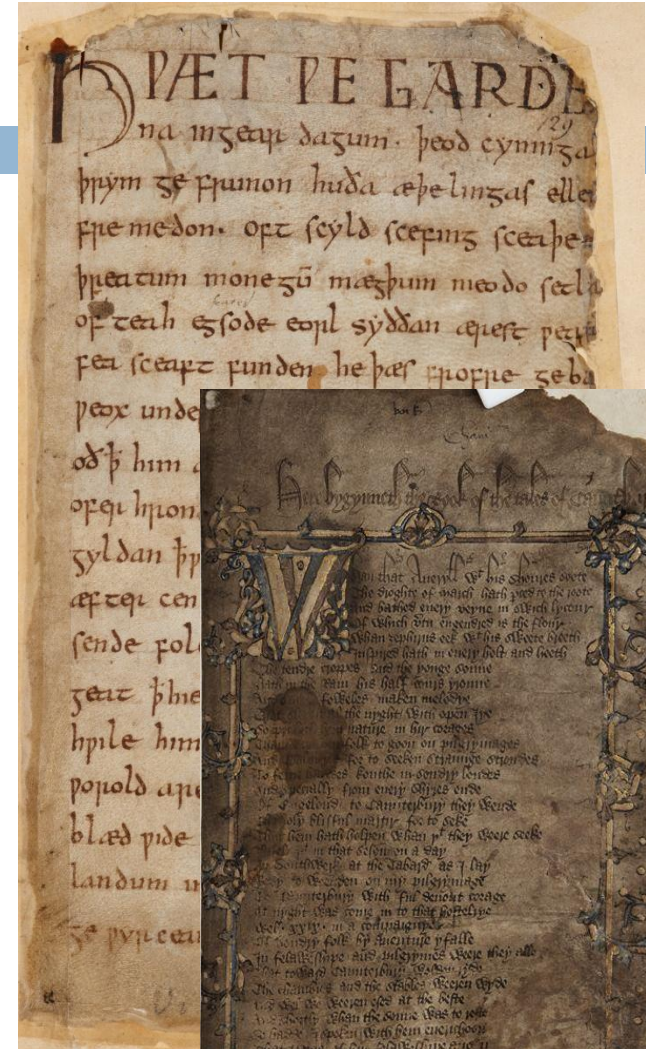 HǷÆT ǷE GARDE
129
na in gear dagum. þeod cyninga
þrym ge frunon huða æþelingas elle
fremedon. oft scyld scefing sceaþe
þreatum monegū mægþum meodo setla
of teah egsode eorl syððan ærest ƿearð
fea sceaft funden he þæs frofre geba
ƿeox unde
oð ꝥ him
ofer hron
gyldan
æfter cen
sende fol
geat
hƿile him
ƿorold are
blæd ƿide
landum
Here bygynneth the book of the tales of Caunterbury
Whan that Aueryll wt his shoures soote
The droghte of march hath perced to the roote
And bathed euery veyne in swich lycour
Of which vtu engendred is the flour
Whan zephirus eek wt his sweete breeth
Inspired hath in euery holt and heeth
The tendre croppes and the yonge sonne
Hath in the Ram his half cours yronne
foweles maken melodye
al the nyght with open Iye
nature in hir corages
folk to goon on pilgrymages
for to seeken straunge strondes
To ferne kouthe in sondry londes
And specially from euery shires ende
Of Engelond to Caunterbury they wende
The holy blisful martir for to seke
That hem hath holpen whan þt they weere seeke
in that seson on a day
In Southwerk at the Tabard as I lay
Redy to weenden on my pilgrymage
To Caunterbury with ful deuout corage
At nyght was come in to that hostelrye
Wel .xxix. in a compaignye
Of sondry folk by auenture yfalle
In felaweshipe and pilgrymes weere they alle
That toward Caunterbury wolden ryde
The chambres and the stables weeren wyde
And wel we weeren esed at the beste
And shortly whan the sonne was to reste
So hadde I spoken with hem euerychoon